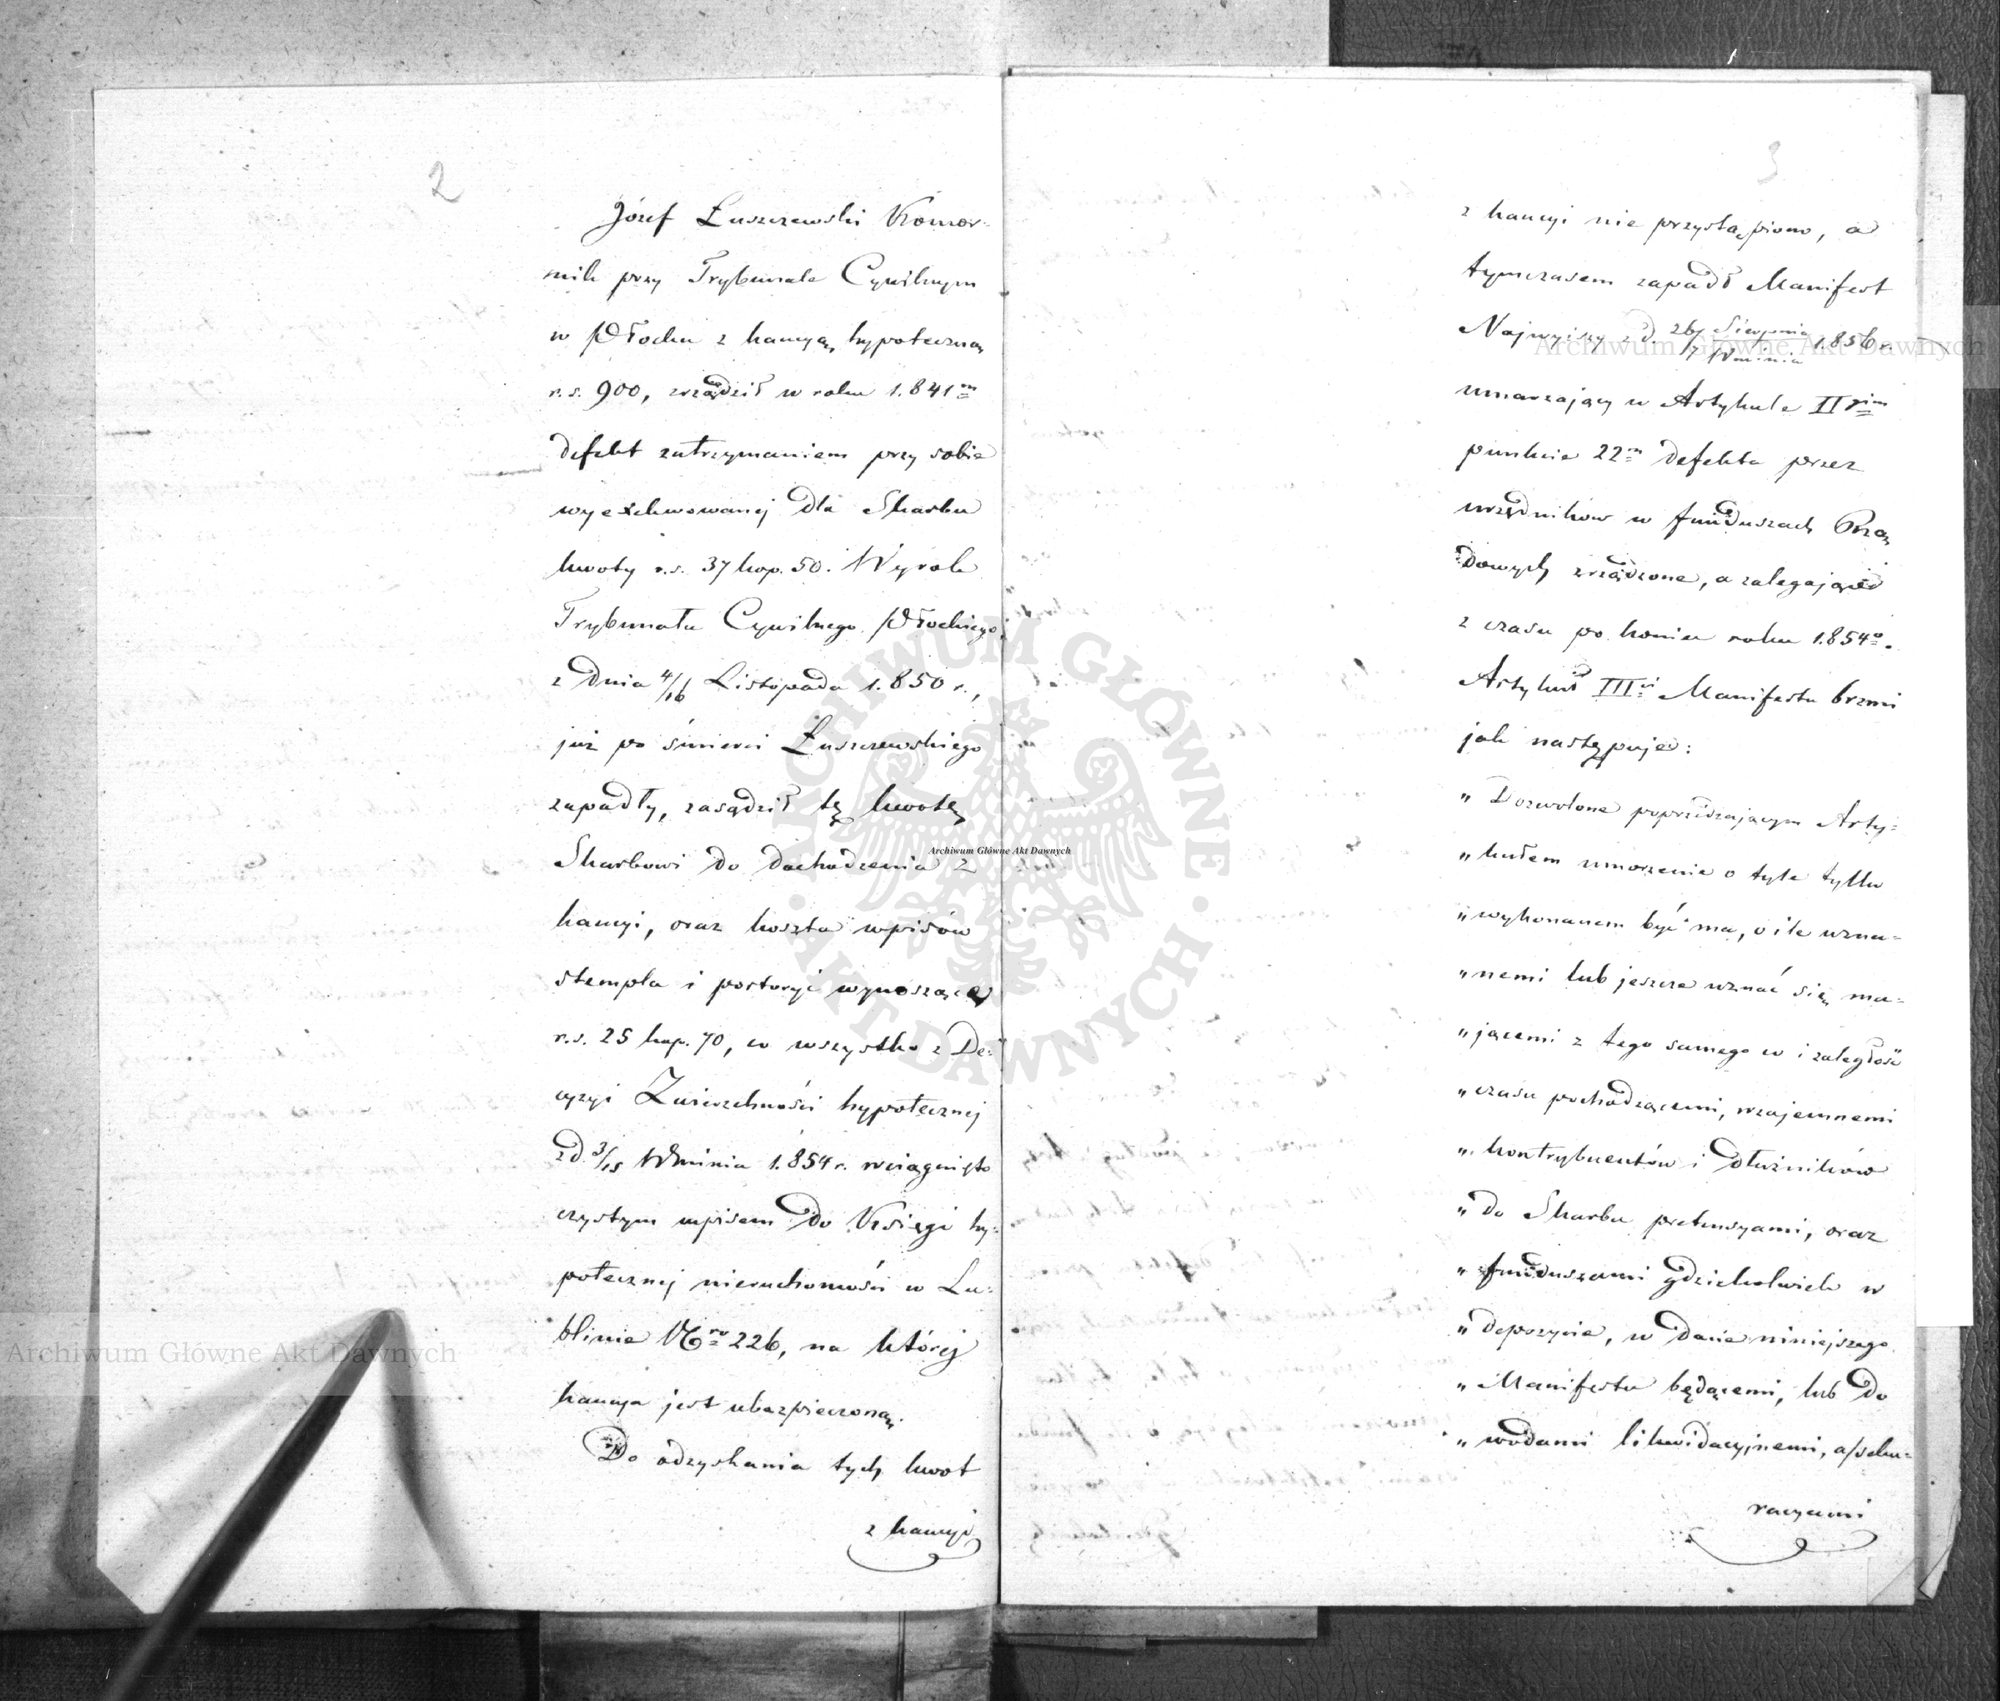 2
Józef Łuszczewski Komor-
nik przy Trybunale Cywilnym
w Płocku z kaucyą hypoteczną
r.s. 900, zrządził w roku 1.841m
defekt zatrzymaniem przy sobie
wyexekwowanej dla Skarbu
kwoty r.s. 37 kop. 50. Wyrok
Trybunału Cywilnego Płockiego
z dnia 4/16 Listopada 1.850 r.,
już po śmierci Łuszczewskiego
zapadły, zasądził tę kwotę
Skarbowi do dochodzenia z
kaucyi, oraz koszta wpisów
stempla i portoryi wynoszące
r.s. 25 kop. 70, co wszystko z De-
cyzyi Zwierzchności hypotecznej
z d. 3/15 Września 1.854 r. wciągnięto
czystym wpisem do Księgi hy-
potecznej nieruchomości w Lu-
blinie Nro 226, na której
kaucya jest ubezpieczoną.
Do odzyskania tych kwot
z kaucyi
3
z kaucyi nie przystąpiono, a
tymczasem zapadł Manifest
Najwyższy z d. 26 Sierpnia/7 Września 1.856 r.
umarzający w Artykule IIgim
punkcie 22m defekta przez
urzędników w funduszach Rzą
dowych zrządzone, a zalegające
z czasu po koniec roku 1.854o.
Artykuł IIIci Manifestu brzmi
jak następuje:
„ Dozwolone poprzedzającym Arty-
„ kułem umorzenie o tyle tylko
„ wykonanem być ma, o ile uzna-
„ nemi lub jeszcze uznać się ma-
„ jącemi z tego samego co i zaległość
„ czasu pochodzącemi, wzajemnemi
„ kontrybuentów i dłużników
„ do Skarbu pretensyami, oraz
„ funduszami gdziekolwiek w
„ depozycie, w dacie niniejszego
„ Manifestu będącemi, lub do
„ wodami likwidacyjnemi, asseku-
racyami
Archiwum Główne Akt Dawnych
Archiwum Główne Akt Dawnych
Archiwum Główne Akt Dawnych
ARCHIWUM GŁÓWNE · AKT DAWNYCH ·